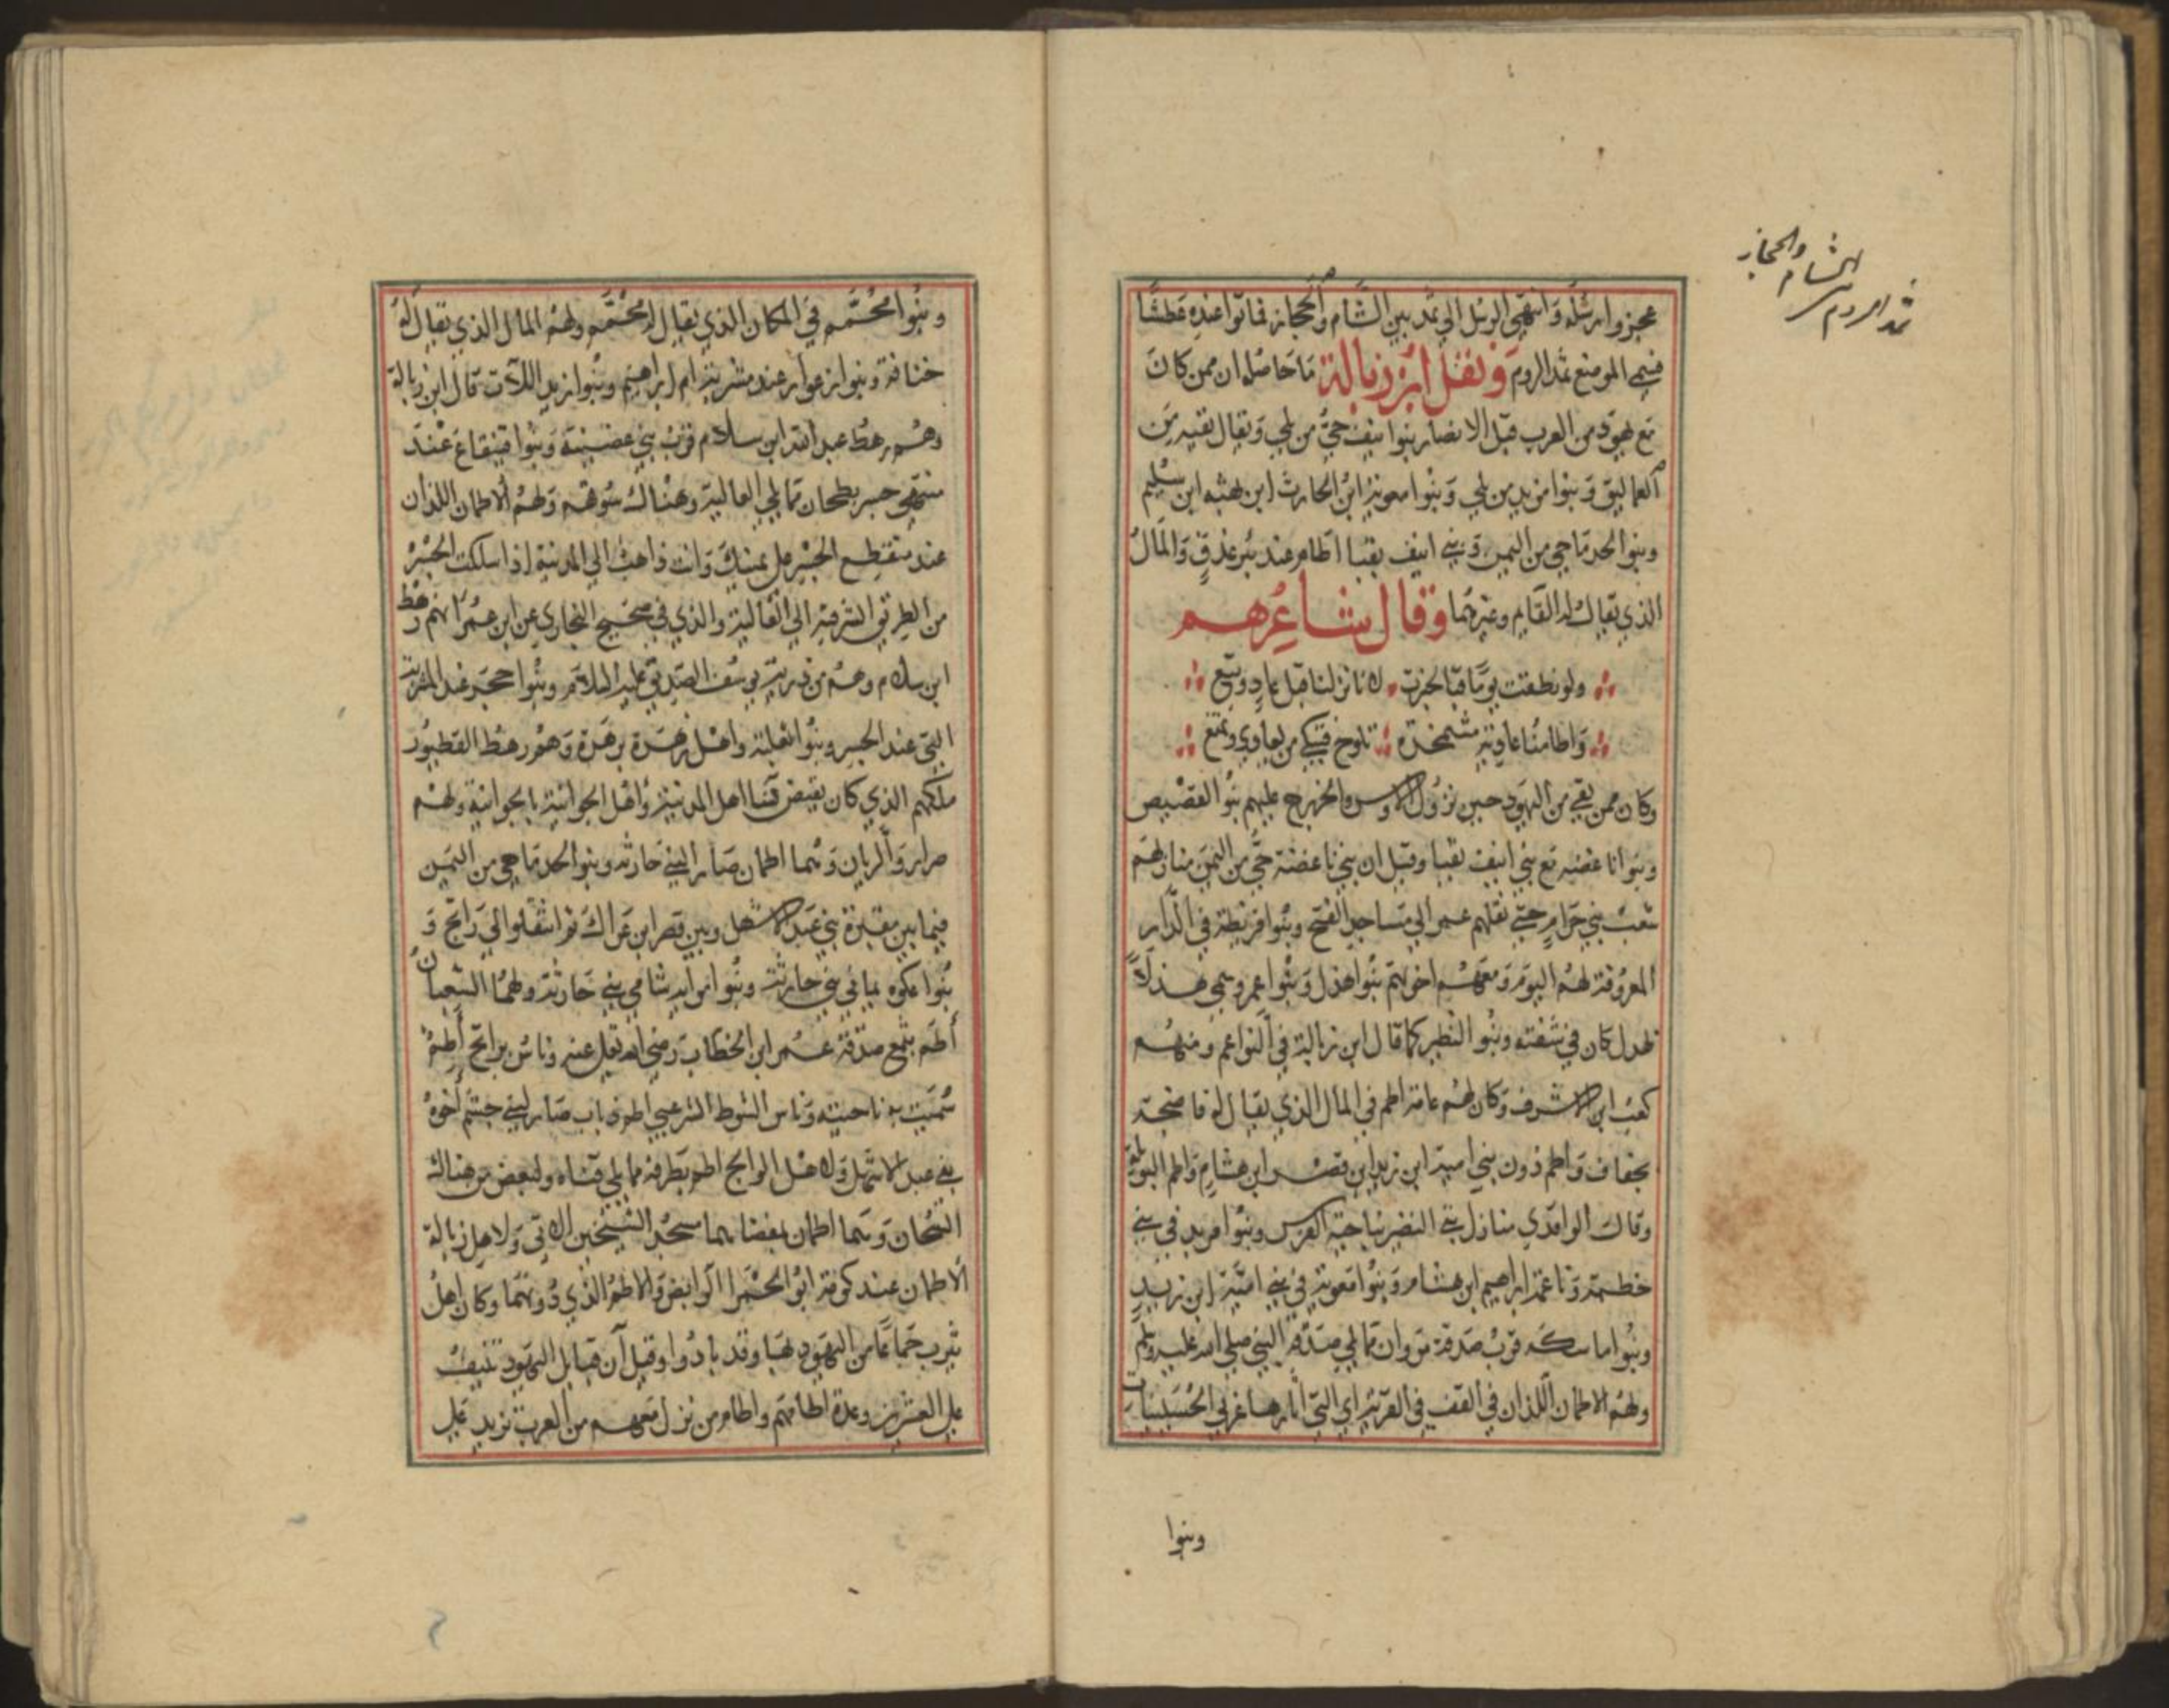 الشام والحجاز
ثمد الروم
عجزوا رسله وانتهى الرسل الى ثمد بين الشام والحجاز فماتوا عنده عطشا
فسمي الموضع ثمد الروم ونقل ابن زبالة ما حاصله ان ممن كان
مع يهود من العرب قبل الانصار بنوا انيف حي من بلي ويقال بقية من
العماليق وبنوا مزيد من بلي وبنوا معوية ابن الحارث ابن بهثه ابن سليم
وبنو الجدما حي من اليمن وبني انيف بقبا اطام عند بئر عذق والمال
الذي يقال له القايم وغيرهما وقال شاعرهم
ولو نطقت يوما قبا لخبرت لانا نزلنا قبل عاد وتبع
واطامنا عادية مشمخرة تلوح فتنكي من يعادي وتمنع
وكان ممن بقي من اليهود حين نزول الاوس والخزرج عليهم بنو القصيص
وبنوا ناغصه مع بني انيف بقبا وقيل ان بني ناغصة حي من اليمن منازلهم
شعب بني حرام حتى نقلهم عمر الى مساجد الفتح وبنوا قريظة في الدار
المعروفة لهم اليوم ومعهم اخوانهم بنوا هذل وبنوا عمرو سمي هذلا
لهدل كان في شفته وبنو النضير كما قال ابن زبالة في النواعم ومنهم
كعب ابن الاشرف وكان لهم عامة اطم في المال الذي يقال له فاضجة
بجفاف واطم دون بني امية ابن زيد ابن قصر ابن هشام واطم البويلة
وقال الواقدي منازل بني النضير بناحية الغرس وبنوا مريد في بني
خطمة وناعمة ابراهيم ابن هشام وبنوا معوية في بني امية ابن زيد
وبنوا ماسكه قرب صدقة مروان مما يلي صدقة النبي صلى الله عليه وسلم
ولهم الاطمان اللذان في القف في القرية اي التي اثارها غربي الحسينيات
وبنوا
وبنوا محمم في المكان الذي يقال له محمم ولهم المال الذي يقال له
خنافة وبنوا زعورا عند مشربة ام ابراهيم وبنوا زيد اللات قال ابن زبالة
وهم رهط عبد الله ابن سلام قرب بني عضينة وبنوا قينقاع عند
منتهى جسر بطحان مما يلي العالية وهناك سوقهم ولهم الاطمان اللذان
عند منقطع الجسر على يمينك وانت ذاهب الى المدينة اذا سلكت الجسر
من الطريق الشرقية الى العالية والذي في صحيح البخاري عن ابن عمر انهم رهط
ابن سلام وهم من ذرية يوسف الصديق عليه السلام وبنوا حجر عند المشربة
التي عند الجسر وبنوا ثعلبة واهل زهرة بزهرة وهم رهط القطيون
ملكهم الذي كان يفتض نسا اهل المدينة واهل الجوانية بالجوانية ولهم
صرار والريان وهما اطمان صار لبني حارثه وبنو الجدما حي من اليمن
فيما بين مقبرة بني عبد الاشهل وبين قصر ابن عراك ثم انتقلوا الى راتج و
بنوا عكوه يماني بني حارثة وبنوا مراية شامي بني حارثة ولهما الشبعان
اطم بثمغ صدقة عمر ابن الخطاب رضي الله تعالى عنه وناس براتج اطم
سميت به ناحيته وناس الشوط الشرعبي اطم ذباب صار لبني جشم اخوة
بني عبد الاشهل ولاهل الوالج اطم بطرفه مما يلي قناه ولبعض من هناك
الشيخان وهما اطمان بمفضاهما مسجد الشيخين الاتي ولاهل زبالة
الاطمان عند كومة ابو الحمرا الرابض والاطم الذي دونهما وكان اهل
يثرب جماعا من اليهود بها وقد بادوا وقيل ان قبايل اليهود تنيف
على العشرين وعدة اطامهم واطام من نزل معهم من العرب تزيد على